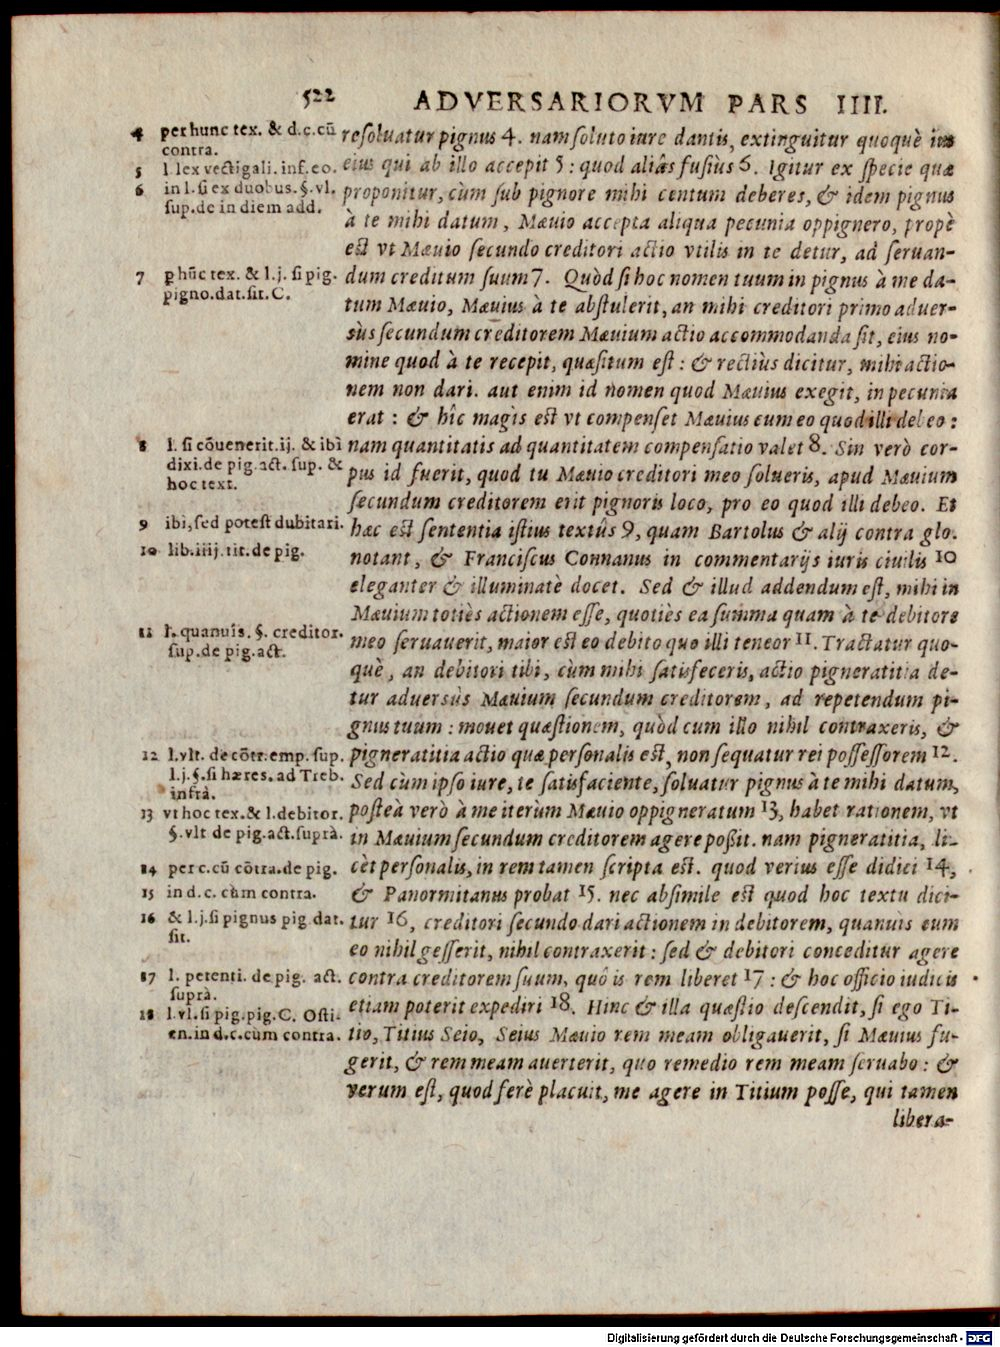 522 ADVERSARIORVM PARS IIII.
4 per hunc tex. & d.c.cũ
contra.
5 l. lex vectigali. inf. eo.
6 in l. si ex duobus. §. vl.
sup. de in diem add.
7 p hũc tex. & l.j. si pig.
pigno.dat.sit. C.
8 l. si cōuenerit.ij. & ibì
dixi.de pig.act. sup. &
hoc text.
9 ibi, sed potest dubitari.
10 lib.iiij. tit. de pig.
11 l. quanuîs. §. creditor.
sup.de pig.act.
12 l.vlt. de cōtr.emp. sup.
l.j.§.si hæres. ad Treb.
infrà.
13 vt hoc tex.& l.debitor.
§.vlt de pig.act.suprà.
14 per c.cũ cōtra.de pig.
15 in d. c. cùm contra.
16 & l.j.si pignus pig dat.
sit.
17 l. petenti. de pig. act.
suprà.
18 l.vl.si pig.pig.C. Osti-
en.in d.c.cùm contra.
resoluatur pignus 4. nam soluto iure dantis, extinguitur quoquè ius
eius qui ab illo accepit 5 : quod aliâs fusiùs 6. Igitur ex specie quæ
proponitur, cùm sub pignore mihi centum deberes, & idem pignus
à te mihi datum, Mæuio accepta aliqua pecunia oppignero, propè
est vt Mæuio secundo creditori actio vtilis in te detur, ad seruan-
dum creditum suum 7. Quòd si hoc nomen tuum in pignus à me da-
tum Mæuio, Mæuius à te abstulerit, an mihi creditori primo aduer-
sùs secundum creditorem Mæuium actio accommodanda sit, eius no-
mine quod à te recepit, quæsitum est : & rectiùs dicitur, mihi actio-
nem non dari. aut enim id nomen quod Mæuius exegit, in pecunia
erat : & hîc magìs est vt compenset Mæuius cum eo quod illi debeo :
nam quantitatis ad quantitatem compensatio valet 8. Sin verò cor-
pus id fuerit, quod tu Mæuio creditori meo solueris, apud Mæuium
secundum creditorem erit pignoris loco, pro eo quod illi debeo. Et
hæc est sententia istius textûs 9, quam Bartolus & alij contra glo.
notant, & Franciscus Connanus in commentarijs iuris ciuilis 10
eleganter & illuminatè docet. Sed & illud addendum est, mihi in
Mæuium totiès actionem esse, quotiès ea summa quam à te debitore
meo seruauerit, maior est eo debito quo illi teneor 11. Tractatur quo-
què, an debitori tibi, cùm mihi satisfeceris, actio pigneratitia de-
tur aduersùs Mæuium secundum creditorem, ad repetendum pi-
gnus tuum : mouet quæstionem, quòd cum illo nihil contraxeris, &
pigneratitia actio quæ personalis est, non sequatur rei possessorem 12.
Sed cùm ipso iure, te satisfaciente, soluatur pignus à te mihi datum,
posteà verò à me iterùm Mæuio oppigneratum 13, habet rationem, vt
in Mæuium secundum creditorem agere poßit. nam pigneratitia, li-
cèt personalis, in rem tamen scripta est. quod verius esse didici 14,
& Panormitanus probat 15. nec absimile est quod hoc textu dici-
tur 16, creditori secundo dari actionem in debitorem, quanuìs cum
eo nihil gesserit, nihil contraxerit : sed & debitori conceditur agere
contra creditorem suum, quô is rem liberet 17 : & hoc officio iudicis
etiam poterit expediri 18. Hinc & illa quæstio descendit, si ego Ti-
tio, Titius Seio, Seius Mæuio rem meam obligauerit, si Mæuius fu-
gerit, & rem meam auerterit, quo remedio rem meam seruabo : &
verum est, quod ferè placuit, me agere in Titium posse, qui tamen
libera-
Digitalisierung gefördert durch die Deutsche Forschungsgemeinschaft - DFG